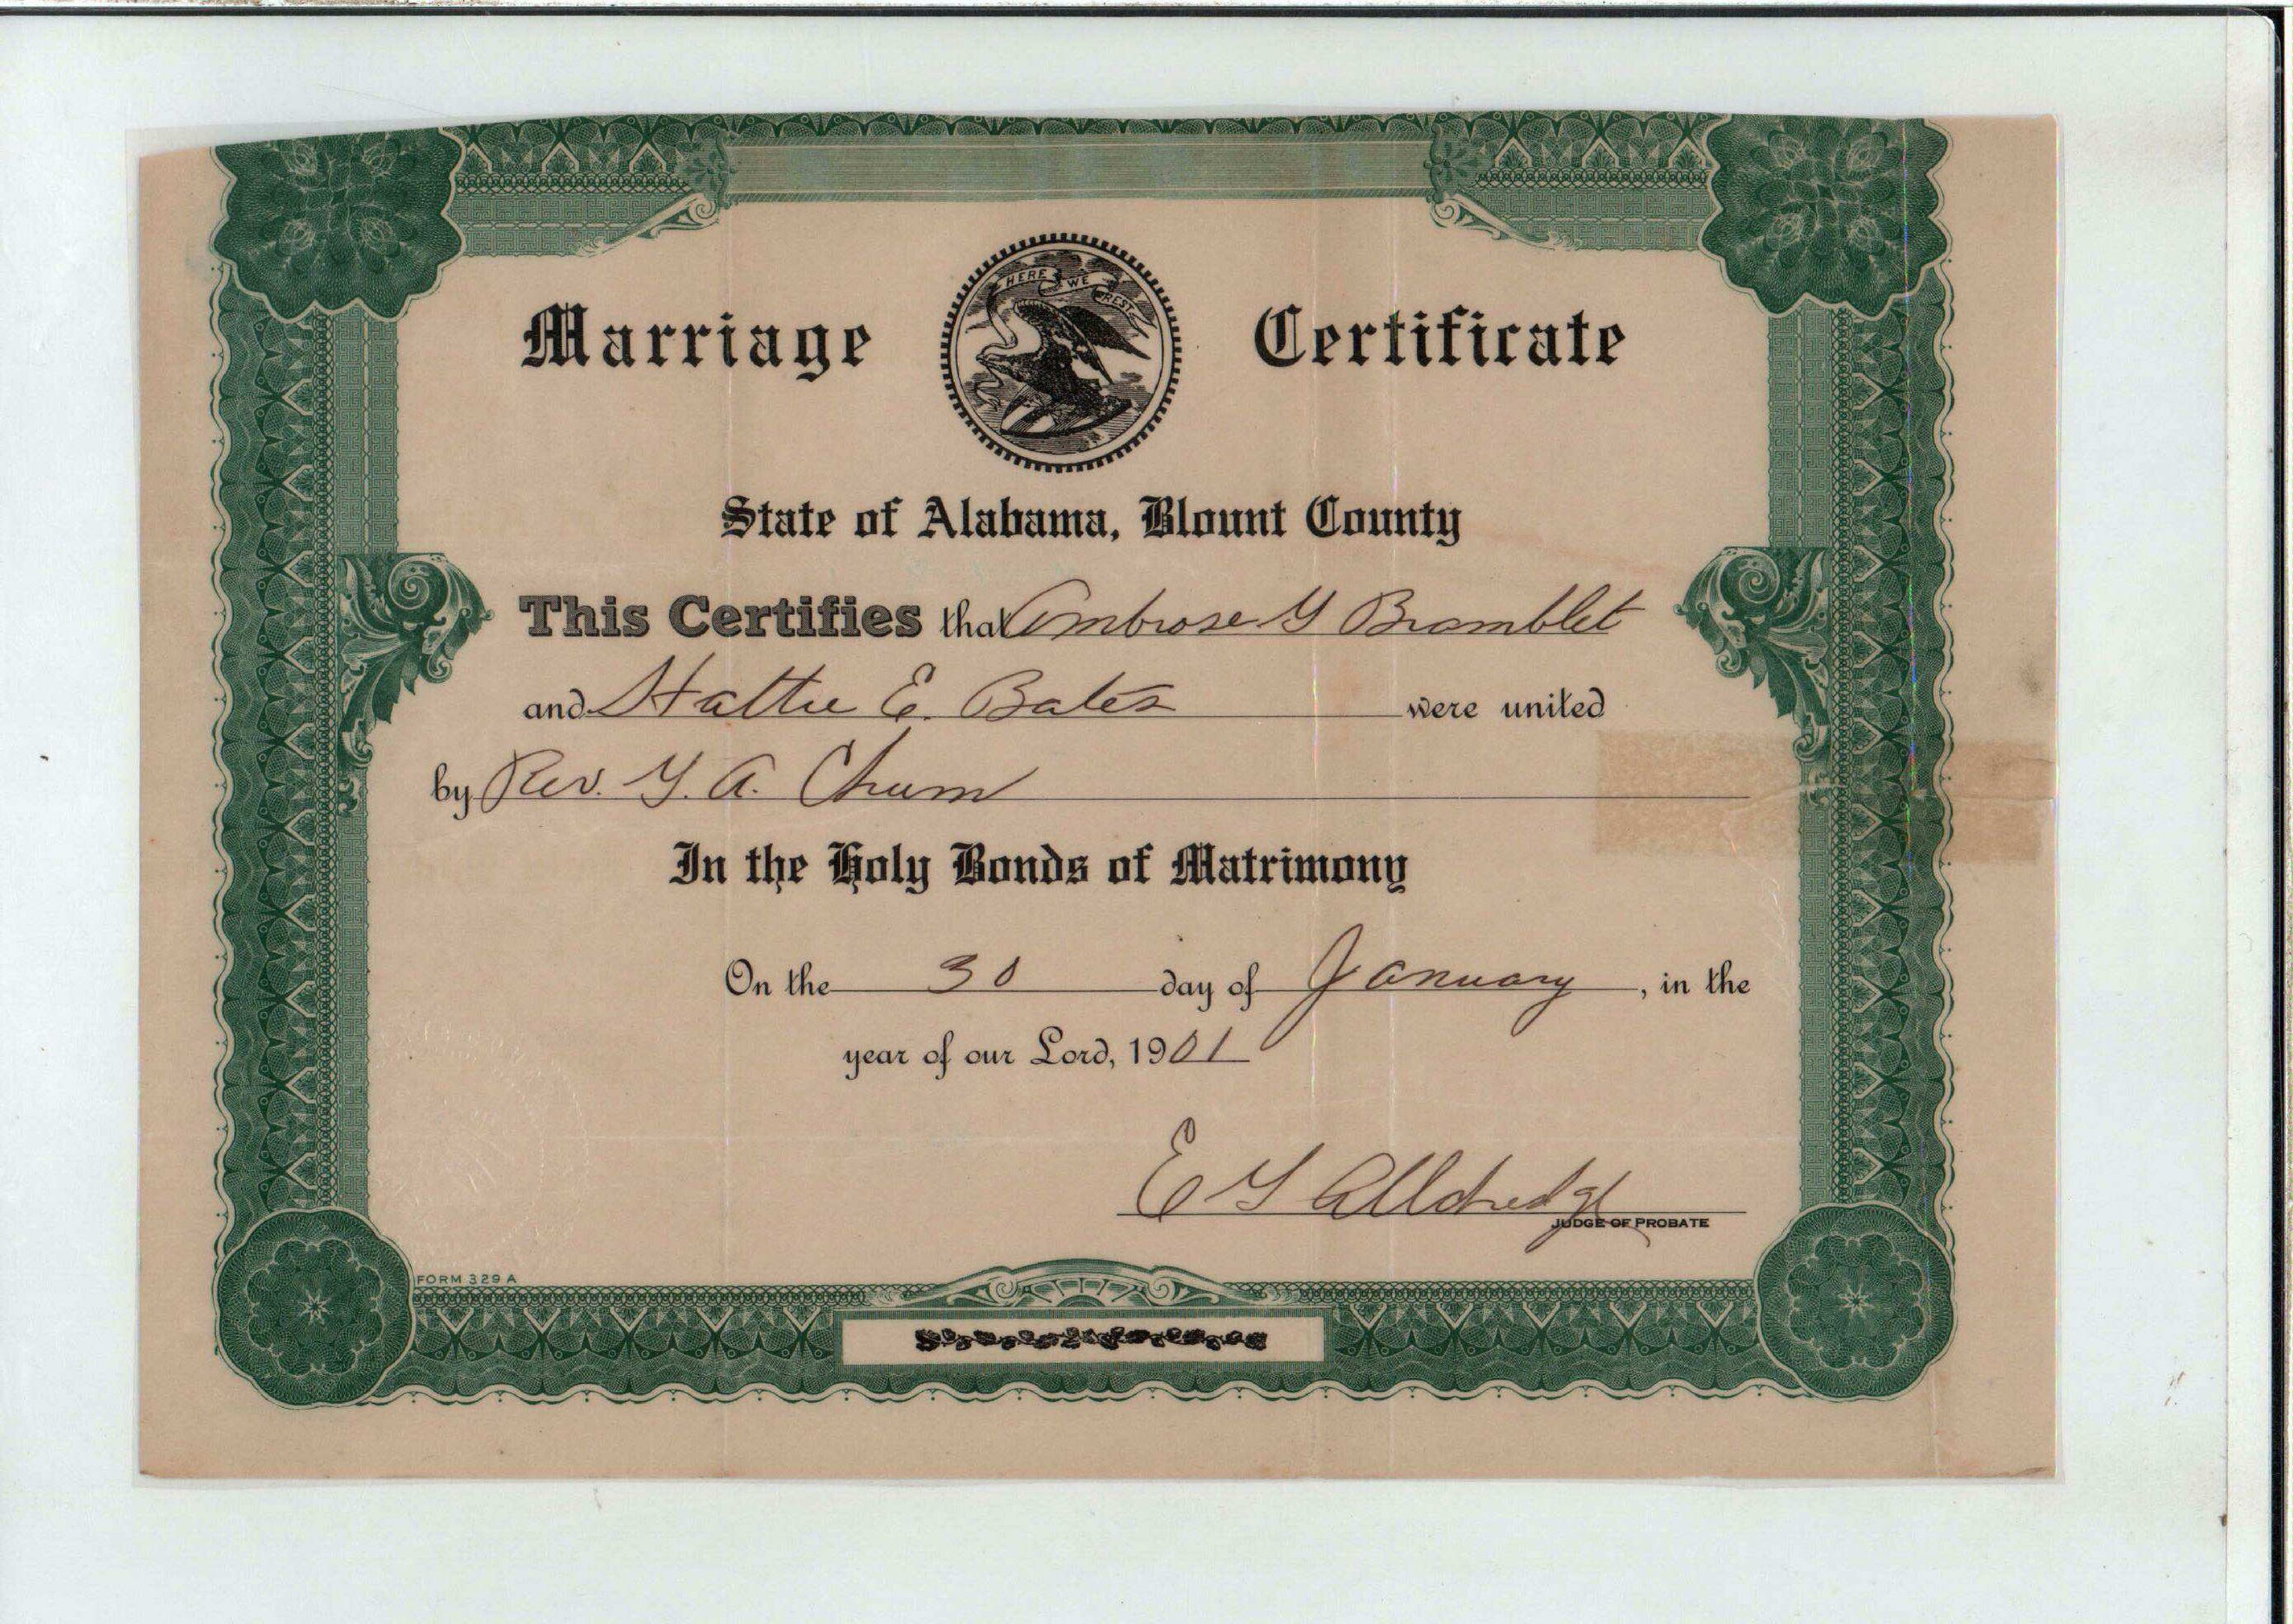 HERE WE REST
Marriage Certificate
State of Alabama, Blount County
This Certifies that Ambrose G Bramblet
and Hattie E. Bates were united
by Rev. G. A. Chum
In the Holy Bonds of Matrimony
On the 30 day of January, in the
year of our Lord, 1901
E G Alldredge
JUDGE OF PROBATE
FORM 329 A